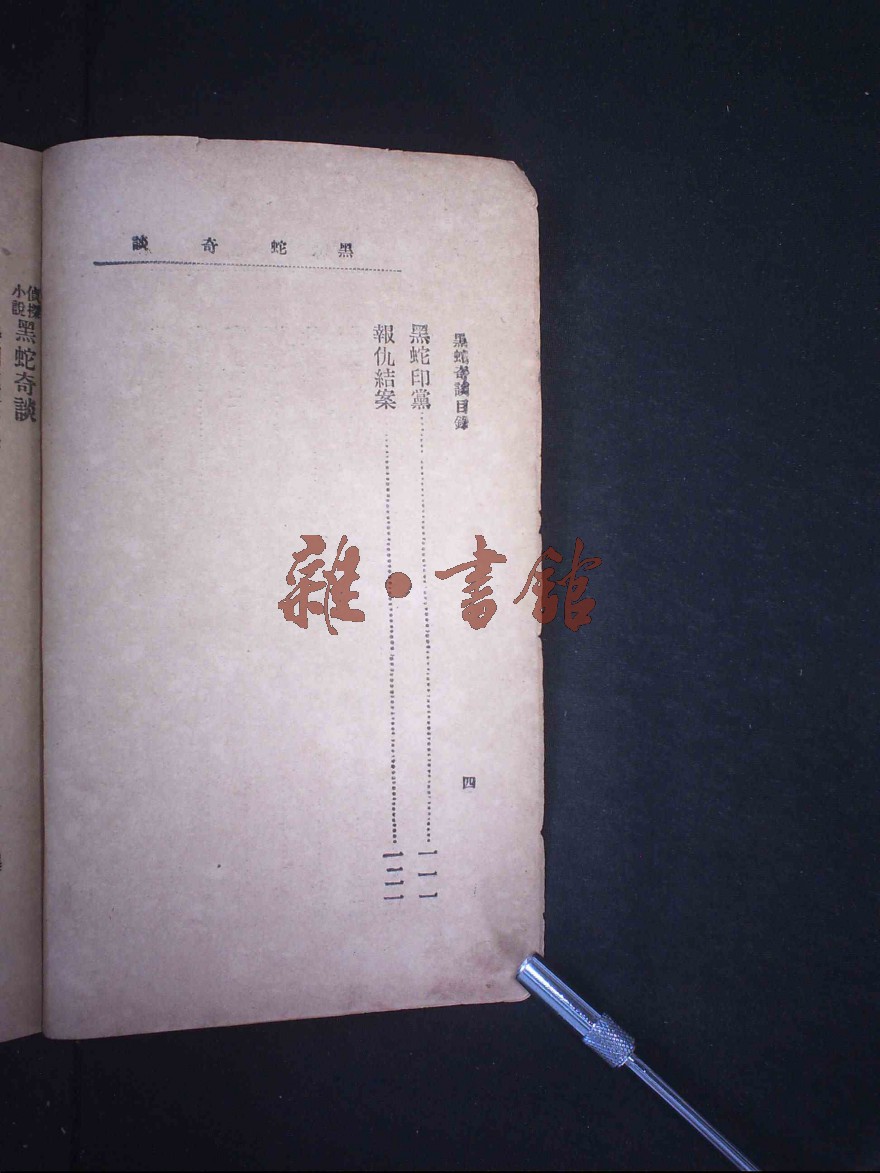 黑蛇奇談
黑蛇奇談目錄
四
黑蛇印黨……一一一
報仇結案
偵探小說 黑蛇奇談
雜·書館